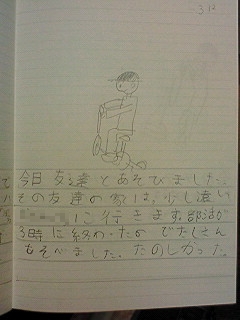 312
今日友達とあそびました。
その友達の家は、少し遠い
に行きます。部活が
3時に終わったのでたくさん
もそべました。たのしかった。